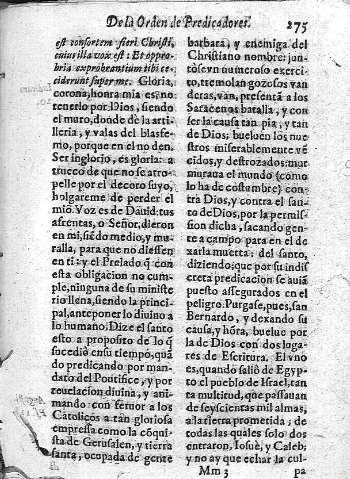 De la Orden de Predicadores. 275
est consortem fieri Christi,
cuius illa vox est: Et oppro-
bria exprobrantium tibi ce-
ciderunt super me. Gloria,
corona, honra mia es, no
tenerlo por Dios, siendo
el muro, donde dè la arti-
lleria, y valas del blasfe-
mo, porque en el no den.
Ser inglorio, es gloria: a
trueco de que no se atro-
pelle por el decoro suyo,
holgareme de perder el
mio. Voz es de Dauid: tus
afrentas, o Señor, dieron
en mi, siẽdo medio, y mu-
ralla, para que no diessen
en ti: y el Prelado q̃ con
esta obligacion no cum-
ple, ninguna de su ministe
rio llena, siendo la princi-
pal, anteponer lo diuino a
lo humano. Dize el santo
esto a proposito de lo q̃
sucediò en su tiempo, quã
do predicando por man-
dato del Pontifice, y por
reuelacion diuina, y ani-
mando con feruor a los
Catolicos a tan gloriosa
empressa como la cõqui-
sta de Gerusalen, y tierra
santa, ocupada de gente
barbara, y enemiga del
Christiano nombre: jun-
tòse vn numeroso exerci-
to, tremolan gozosos van
deras, van, presentã a los
Sarracenos batalla, y con
ser la causa tan pia, y tan
de Dios, bueluen los nue-
stros miserablemente vẽ
cidos, y destrozados: mur
muraua el mundo (como
lo ha de costumbre) con-
trà Dios, y contra el san-
to de Dios, por la permis-
sion dicha, sacando gen-
te a campo para en el de
xarla muerta: del santo,
diziendo, que por su indis
creta predicacion se auiã
puesto assegurados en el
peligro. Purgase, pues, san
Bernardo, y dexando su
causa, y hõra, buelue por
la de Dios con dos luga-
res de Escritura. El vno
es, quando saliò de Egyp-
to el pueblo de Israel, tan
ta multitud, que passauan
de seyscientas mil almas,
a la tierra prometida; de
todas las quales solo dos
entraron, Iosuè, y Caleb,
y no ay que echar la cul-
Mm 3 pa